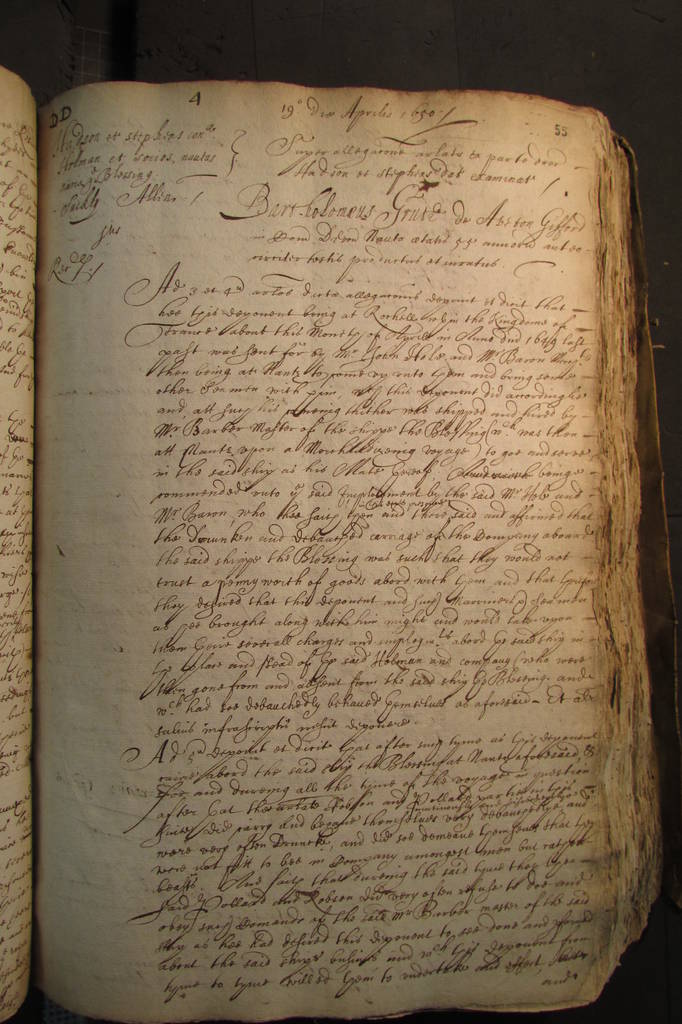 DD 4 19º Die Aprilis 1650 /
55
Hudson et Stephens con
Holman et socios, nautas
navis ye Blessing.
Suckly Allin /
Super allegatione ex parte
Hudson et Stephens dat examinat /
Bartholomeus de Abton Gifford
in Com Devon Nauta ætatis 55 annorum aut eo
circiter testis productus et iuratus
Ad 3 et 4 artos dictæ allegationis deponit et dicit that
hee this deponent being at Rochelle in the Kingdome of
France about this Moneth of Aprill in Anno dni 1649 last
past was sent for by Mr John Hole and Mr Baron
then being at Nantz to come up unto them and bring some
other Seamen with him, this deponent did accordingly
and att his coming thither was shipped and hired by
Mr Barber Master of the shippe the Blessing (wch was then
att Nantz upon a voyage) to goe and serve
in the said ship as his Mate being
commended unto ye said Imployment by the said Mr Hole and
Mr Baron, who hee saith then and there said and affirmed that
the Drunken and debauched carriage of the Company aboard
the said shippe the Blessing was such that they would not
trust a penny worth of goods abord with them and that
they desired that this deponent and such Marriners or sea men
as hee brought along with him might and would take upon
them severall charges and abord the said ship in
the place and stead of the said Holman and company (who were
then gone from and absent from the said ship the Blessing and
wch had soe debauchedly behaved themselves as aforesaid Et
salvis infrascriptis nescit deponere.
Ad 5 deponit et dicit that after such tyme as this deponent
came abord the said ship the Blessing at Nantz aforesaid,
and dureing all the tyme of the voyage in question
after that the Robson and Pollard
did carry and behave themselves very debauchedly and
were very often Drunke, and did soe demeane themselves that they
were not fit to bee in Company amongst men but rather
beasts. And saith that dureing the said tyme they the
said Pollard and Robson did very often refuse to doe and
obey such Comands of the said Mr Barber master of the said
ship as hee had desired this deponent to see done and
about the said ships business and wch this deponent from
tyme to tyme willed them to undertake and effect,
and